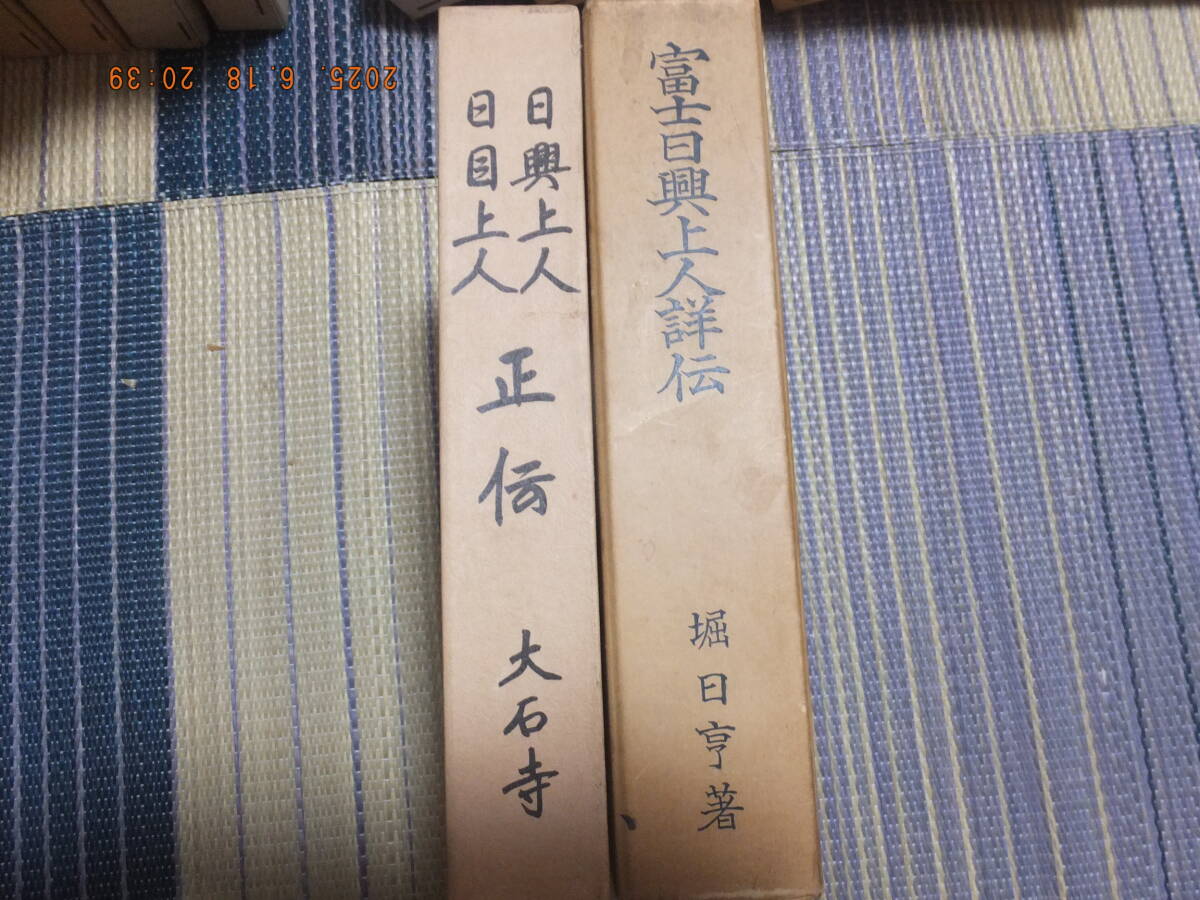 2025. 6.18 20:39
富士日興上人詳伝
堀日亨著
日興上人
日目上人
正伝
大石寺